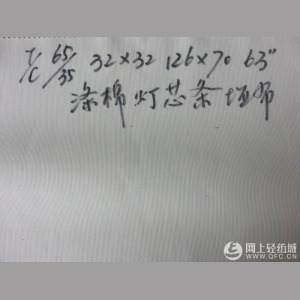 T/C 65/35 32×32 126×70 63"
涤棉灯芯条坯布
网上轻纺城
WWW.QFC.CN